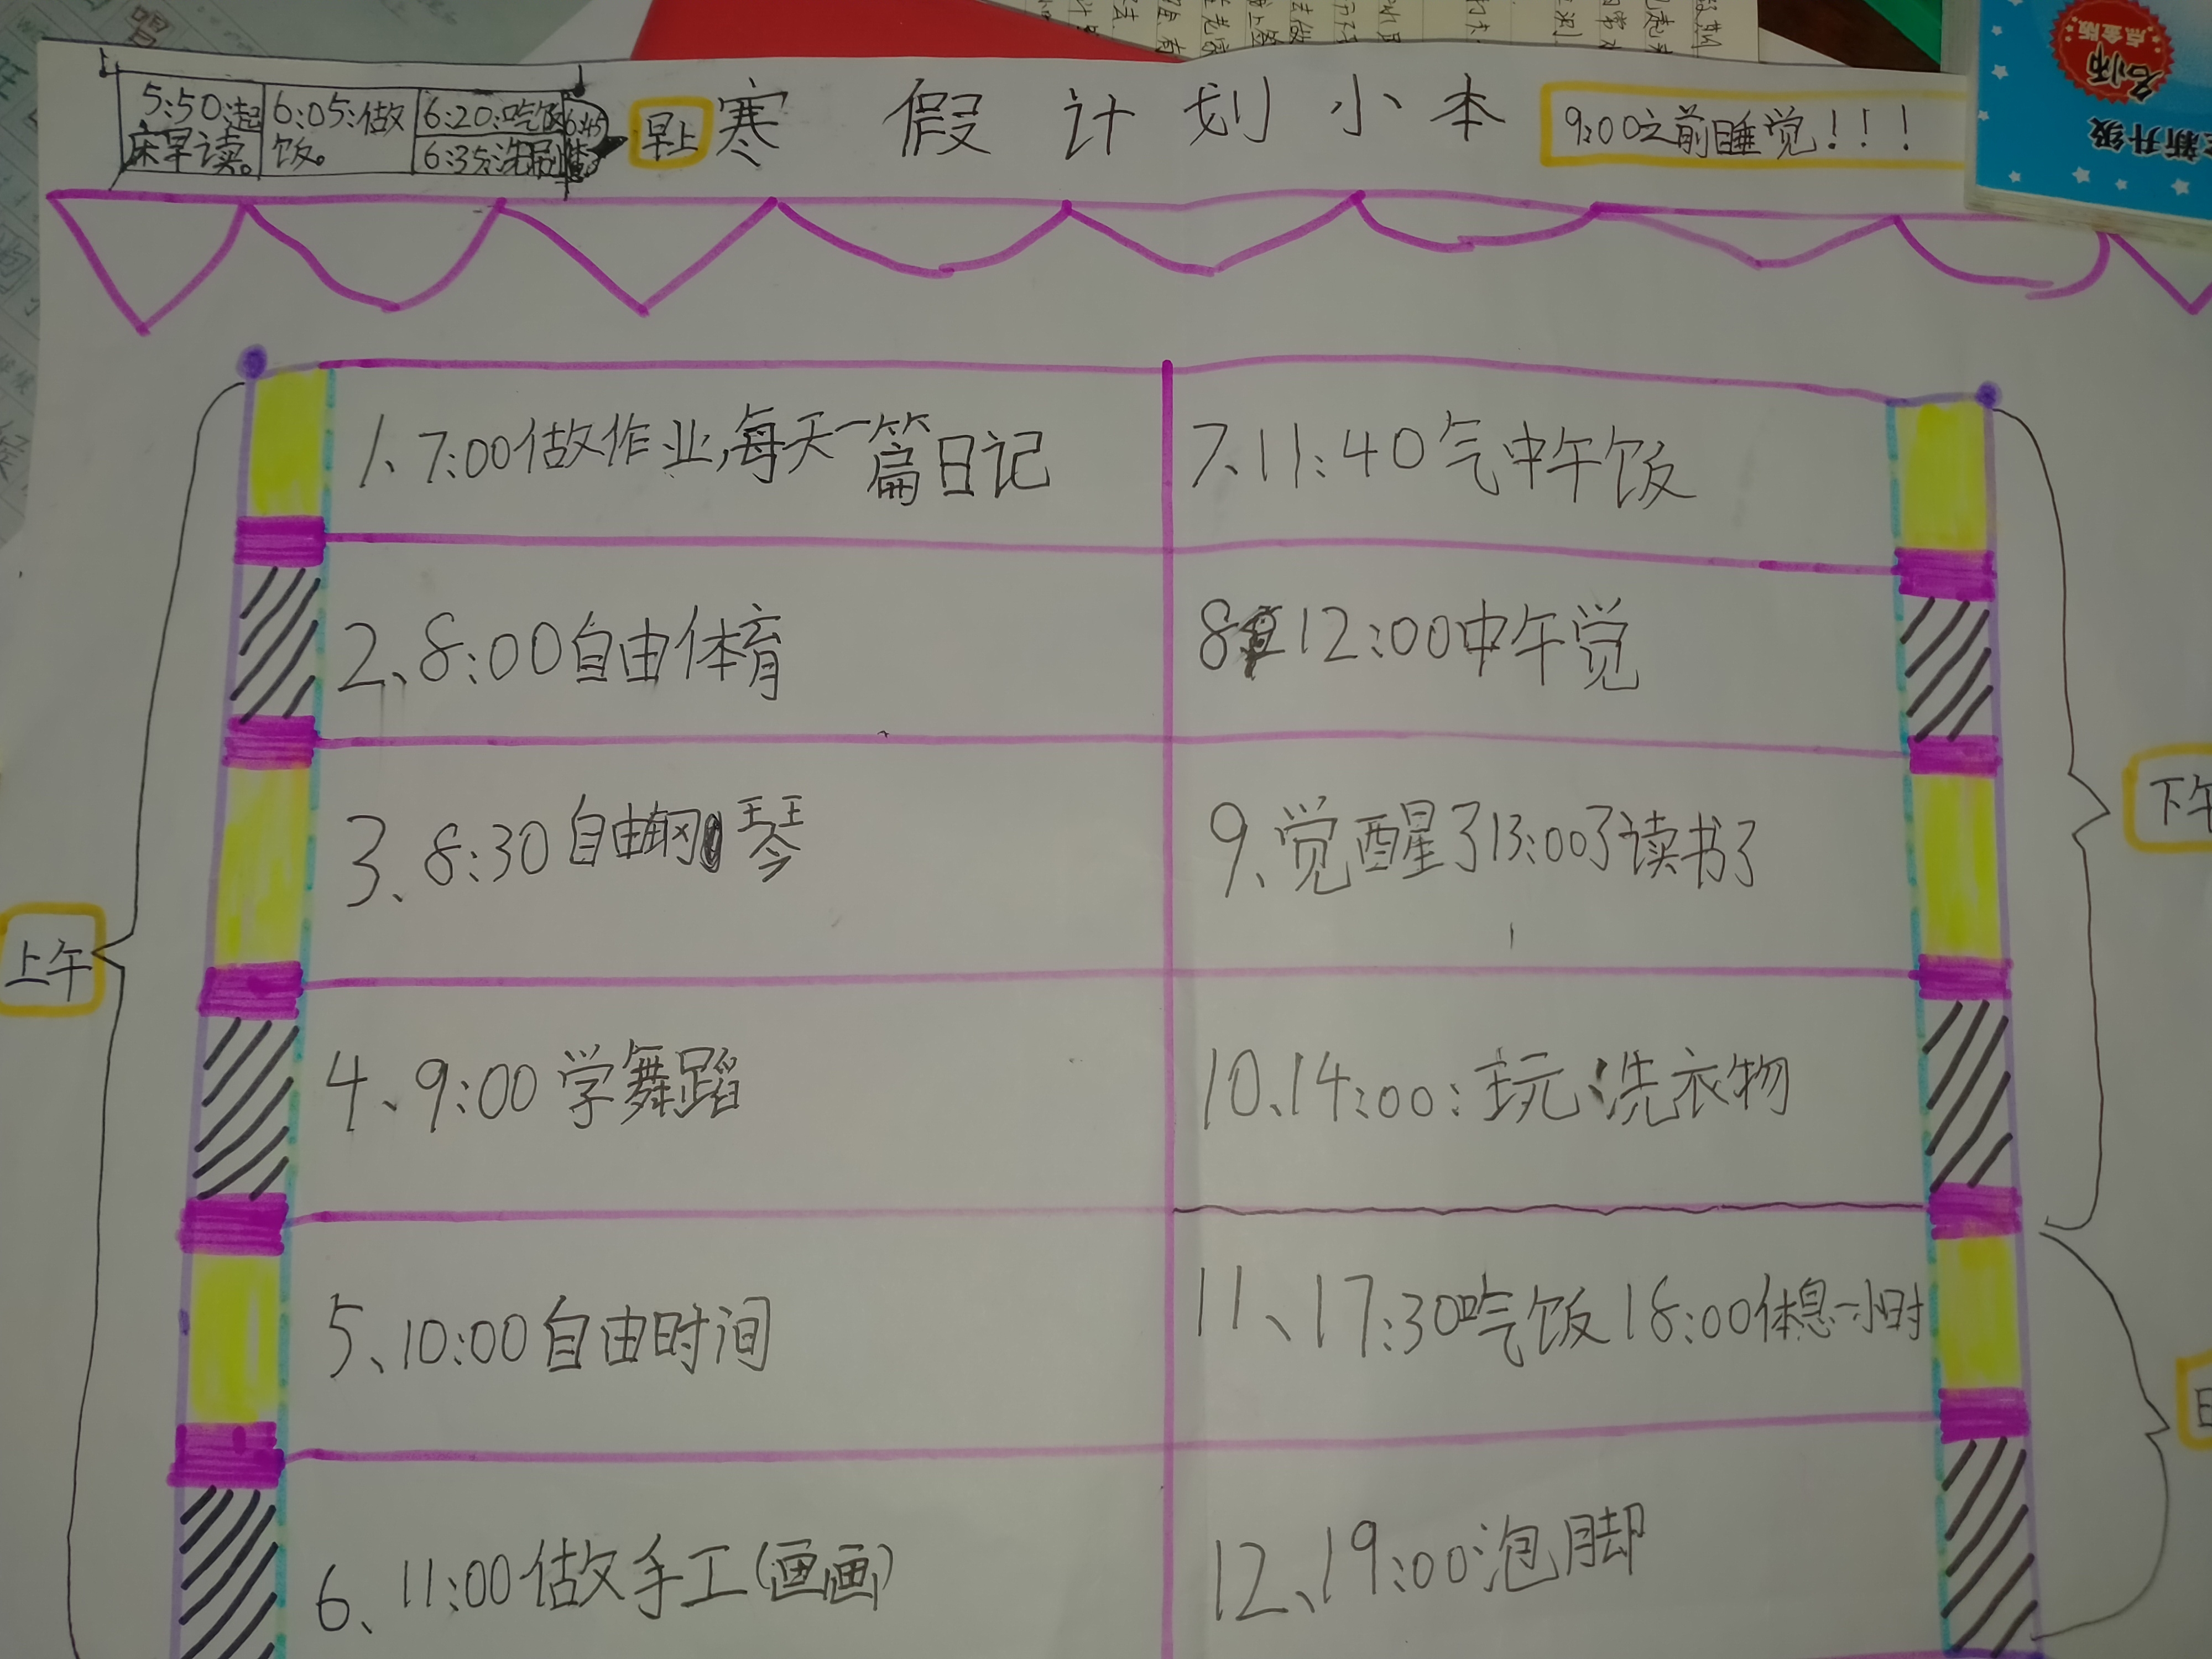 5:50:起床早读。
6:05:做饭。
6:20:吃饭
6:35:洗刷
6:45
早上
寒假计划小本
9:00之前睡觉！！！
名师
点金版
新升级
上午
1、7:00做作业,每天一篇日记
2、8:00自由体育
3、8:30自由钢琴
4、9:00学舞蹈
5、10:00自由时间
6、11:00做手工(画画)
7、11:40气中午饭
8、12:00中午觉
9、觉醒了13:00了读书了
10、14:00:玩、洗衣物
下午
11、17:30吃饭18:00体息一小时
12、19:00泡脚